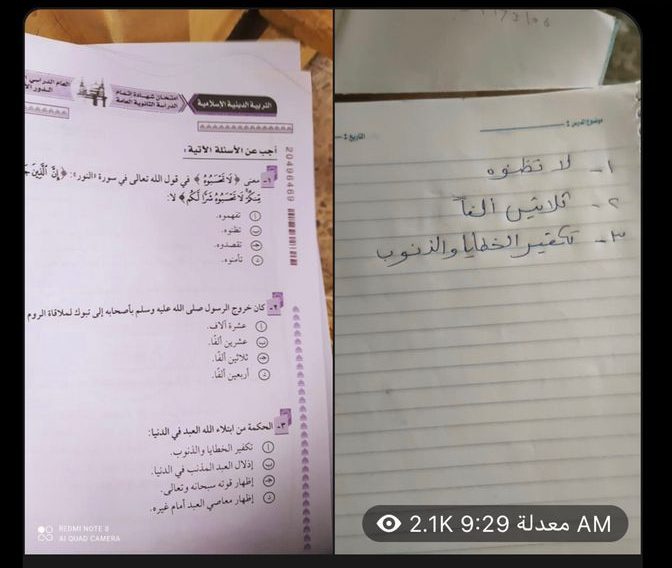 العام الدراسي
الدور
امتحان شهادة إتمام
الدراسة الثانوية العامة
التربية الدينية الإسلامية
أجب عن الأسئلة الآتية:
20496469
١- معنى ﴿لَا تَحْسَبُوهُ﴾ في قول الله تعالى في سورة «النور»: ﴿إِنَّ الَّذِينَ
مِنكُمْ لَا تَحْسَبُوهُ شَرًّا لَكُم﴾ لا:
أ تفهموه.
ب تظنوه.
جـ تقصدوه.
د تأمنوه.
٢- كان خروج الرسول صلى الله عليه وسلم بأصحابه إلى تبوك لملاقاة الروم
أ عشرة آلاف.
ب عشرين ألفًا.
جـ ثلاثين ألفًا.
د أربعين ألفًا.
٣- الحكمة من ابتلاء الله العبد في الدنيا:
أ تكفير الخطايا والذنوب.
ب إذلال العبد المذنب في الدنيا.
جـ إظهار قوته سبحانه وتعالى.
د إظهار معاصي العبد أمام غيره.
REDMI NOTE 8
AI QUAD CAMERA
موضوع الدرس :
التاريخ :
١- لا تظنوه
٢- ثلاثين ألفاً
٣- تكفير الخطايا والذنوب
2.1K معدلة 9:29 AM